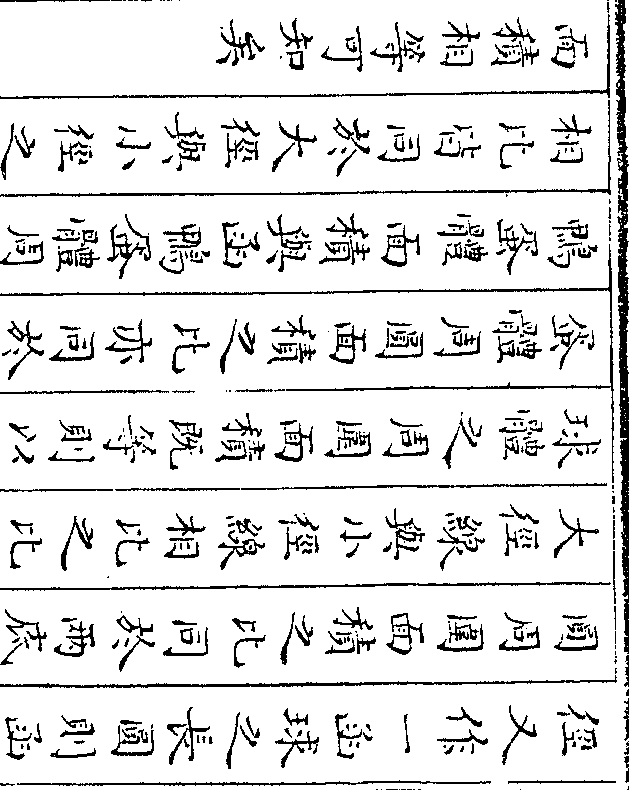 徑又作一函球之長圓則函
圓周圍面積之比同於兩底
大徑線與小徑線相比之比
球體之周圍面積既等則以
蛋體周圍面積之比亦同於
鴨蛋體面積與函鴨蛋體周
相比皆同於大徑與小徑之
面積相等可知矣